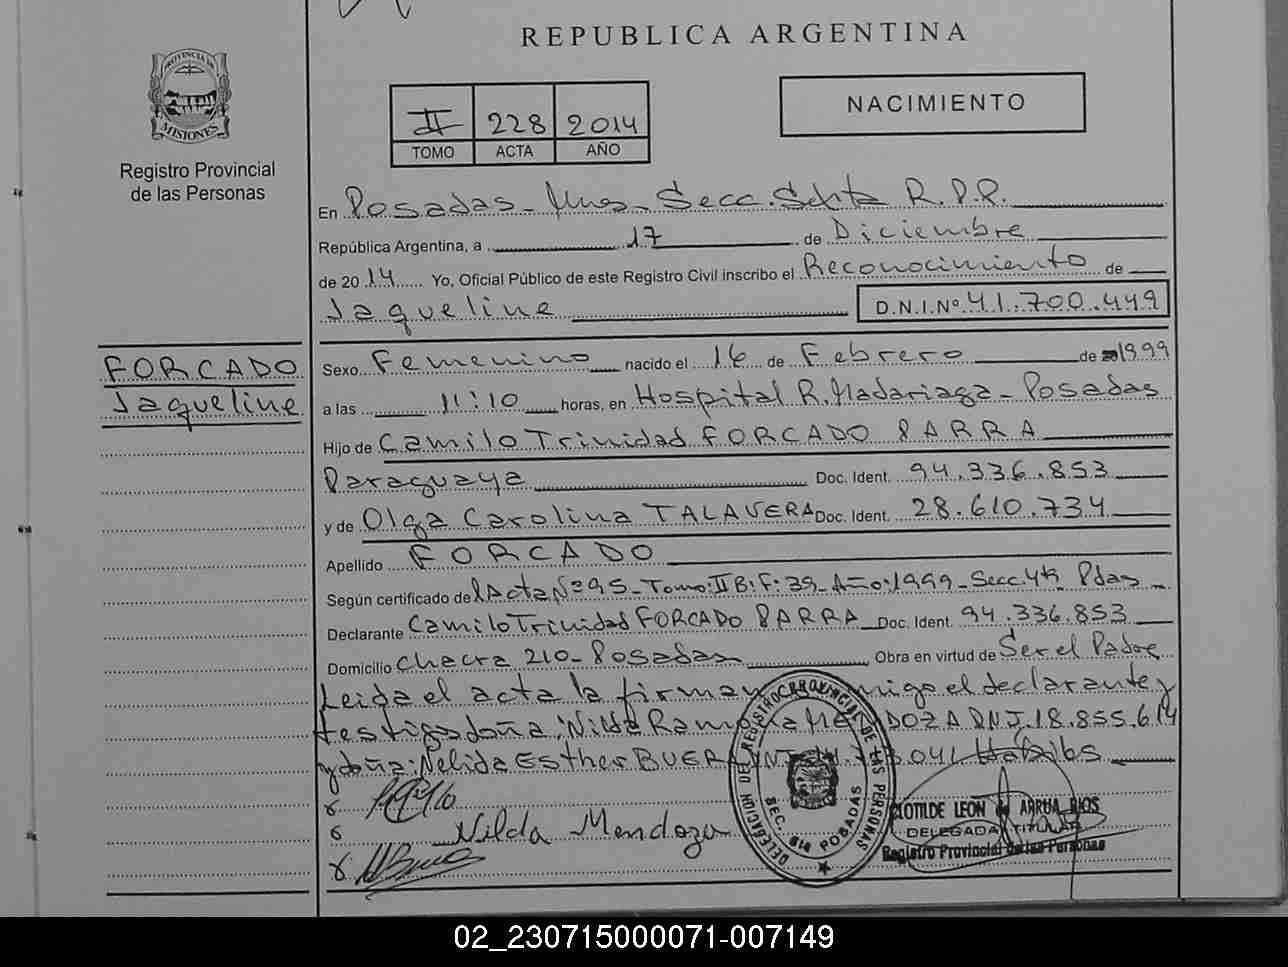 REPUBLICA ARGENTINA
PROVINCIA DE
MISIONES
Registro Provincial
de las Personas
II 228 2014
TOMO ACTA AÑO
NACIMIENTO
En Posadas - Mnes - Secc. Sexta R.P.P.
República Argentina, a 17 de Diciembre
de 2014 Yo, Oficial Público de este Registro Civil inscribo el Reconocimiento de
Jaqueline D.N.I.Nº 41.700.449
FORCADO
Jaqueline
Sexo Femenino nacido el 16 de Febrero de 1999
a las 11:10 horas, en Hospital R. Madariaga - Posadas
Hijo de Camilo Trinidad FORCADO PARRA
Paraguaya Doc. Ident. 94.336.853
y de Olga Carolina TALAVERA Doc. Ident. 28.610.734
Apellido FORCADO
Según certificado del Acta Nº 95 - Tomo: II B: F: 39 - Año: 1999 - Secc. 4ta Pdas -
Declarante Camilo Trinidad FORCADO PARRA Doc. Ident. 94.336.853
Domicilio Chacra 210 - Posadas Obra en virtud de Ser el Padre
Leida el acta la firman migo el declarante y
testigo doña: Nilda Ramona MENDOZA DNI. 18.855.614
y doña: Nelida Esther BUERA 041 Habiles
Nilda Mendoza
DELEGACION DE REGISTRO PROVINCIAL DE LAS PERSONAS
SEC. 6ta POSADAS
CLOTILDE LEON de ARRUA RIOS
DELEGADA TITULAR
Registro Provincial de las Personas
02_230715000071-007149